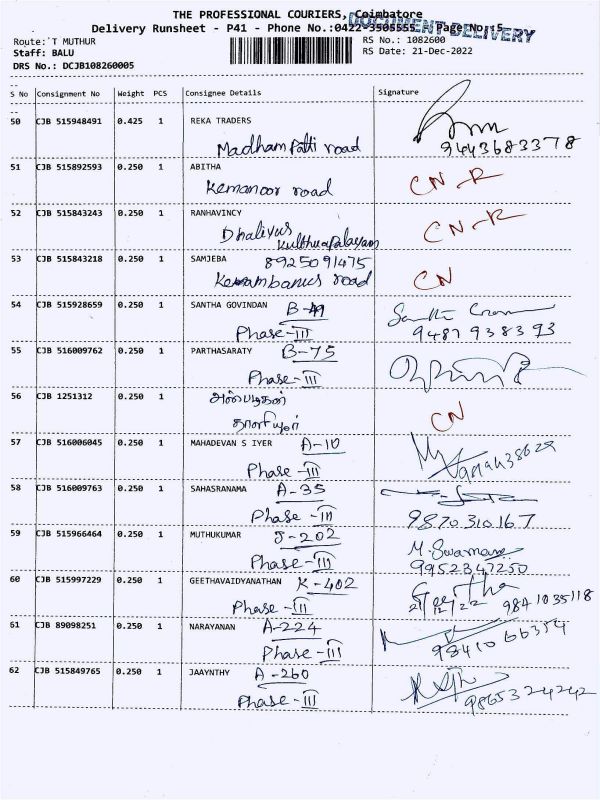 THE PROFESSIONAL COURIERS, Coimbatore
DOCUMENT DELIVERY
Delivery Runsheet - P41 - Phone No.:0422-3505555 Page No: 5
Route: T MUTHUR
RS No.: 1082600
Staff: BALU
RS Date: 21-Dec-2022
DRS No.: DCJB108260005
S No Consignment No Weight PCS Consignee Details Signature
50 CJB 515948491 0.425 1 REKA TRADERS
Madhampatti road 9443683378
51 CJB 515892593 0.250 1 ABITHA CN-R
Kemanoor road
52 CJB 515843243 0.250 1 RANHAVINCY CN-R
Dhaliyus
53 CJB 515843218 0.250 1 SAMJEBA 8925091475 CN
road
54 CJB 515928659 0.250 1 SANTHA GOVINDAN B-49
Phase-III 9487938393
55 CJB 516009762 0.250 1 PARTHASARATY B-75
Phase-III
56 CJB 1251312 0.250 1 CN
57 CJB 516006045 0.250 1 MAHADEVAN S IYER A-10
Phase-III
58 CJB 516009763 0.250 1 SAHASRANAMA A-35
Phase-III 9820310167
59 CJB 515966464 0.250 1 MUTHUKUMAR J-202 M.Swamy
Phase-III 9952347250
60 CJB 515997229 0.250 1 GEETHAVAIDYANATHAN K-402 Geetha
Phase-III 21/12/22 9841035118
61 CJB 89098251 0.250 1 NARAYANAN A-224
Phase-III 9841066354
62 CJB 515849765 0.250 1 JAAYNTHY A-260
Phase-III 9865324242